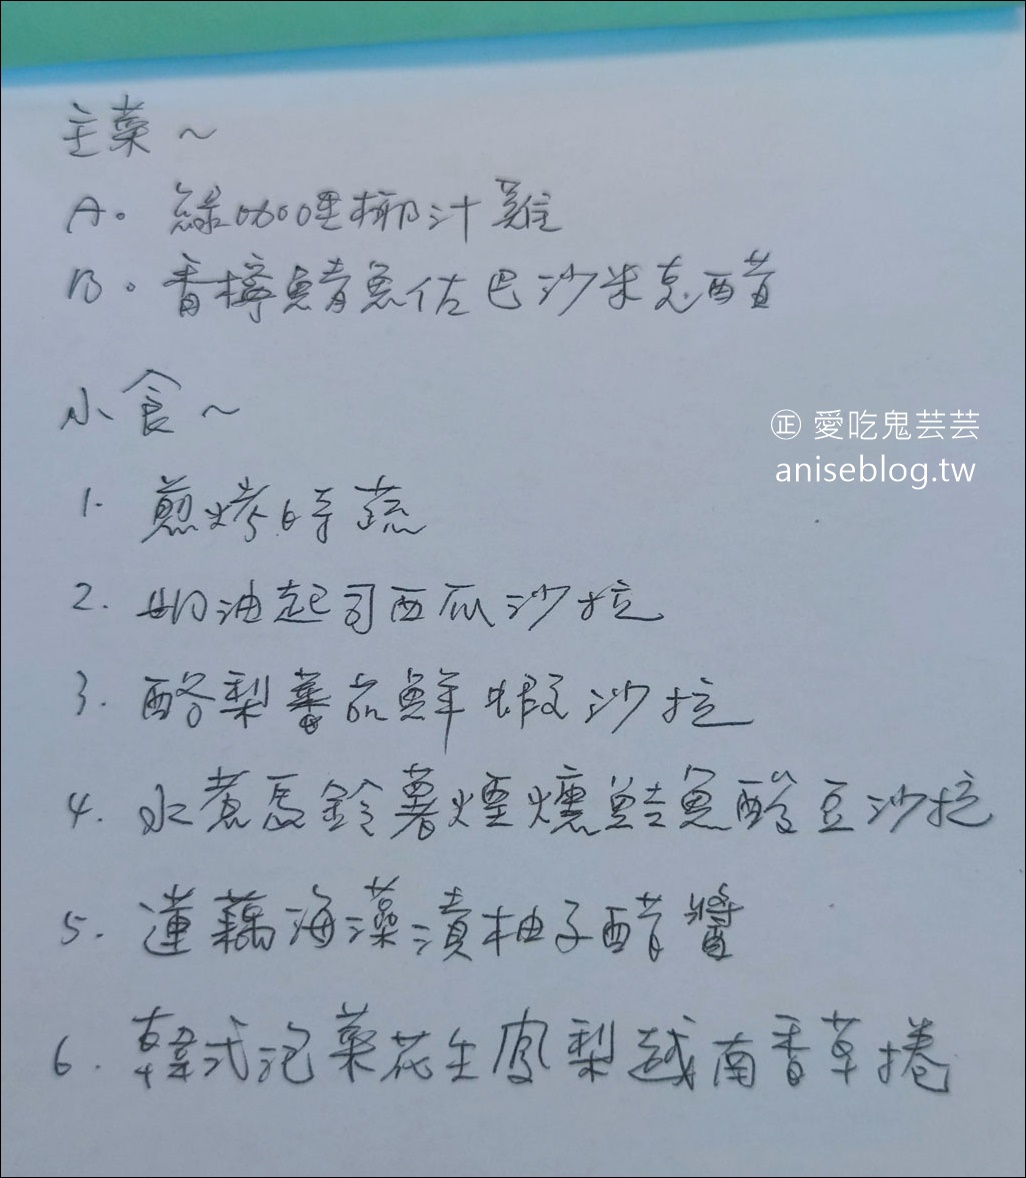 主菜~
A. 綠咖哩椰汁雞
B. 香檸鯖魚佐巴沙米克醋
小食~
㊣ 愛吃鬼芸芸
aniseblog.tw
1. 煎烤時蔬
2. 奶油起司西瓜沙拉
3. 酪梨蕃茄鮮蝦沙拉
4. 水煮馬鈴薯煙燻鮭魚酸豆沙拉
5. 蓮藕海藻漬柚子醋醬
6. 韓式泡菜花生鳳梨越南香草捲